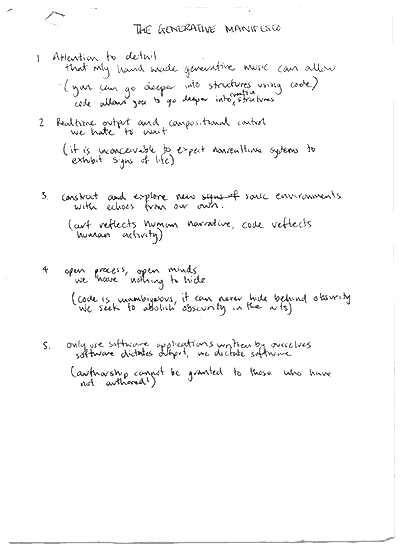 THE GENERATIVE MANIFESTO
1 Attention to detail
that only hand made generative music can allow
(you can go deeper into structures using code)
code allows you to go deeper into creative structures
2 Realtime output and compositional control
we hate to wait
(it is inconceivable to expect nonrealtime systems to
exhibit signs of life)
3. construct and explore new signs of sonic environments
with echoes from our own.
(art reflects human narrative, code reflects
human activity)
4 open process, open minds
we have nothing to hide
(code is unambiguous, it can never hide behind obscurity
we seek to abolish obscurity in the arts)
5. only use software applications written by ourselves
software dictates output, we dictate software
(authorship cannot be granted to those who have
not authored!)